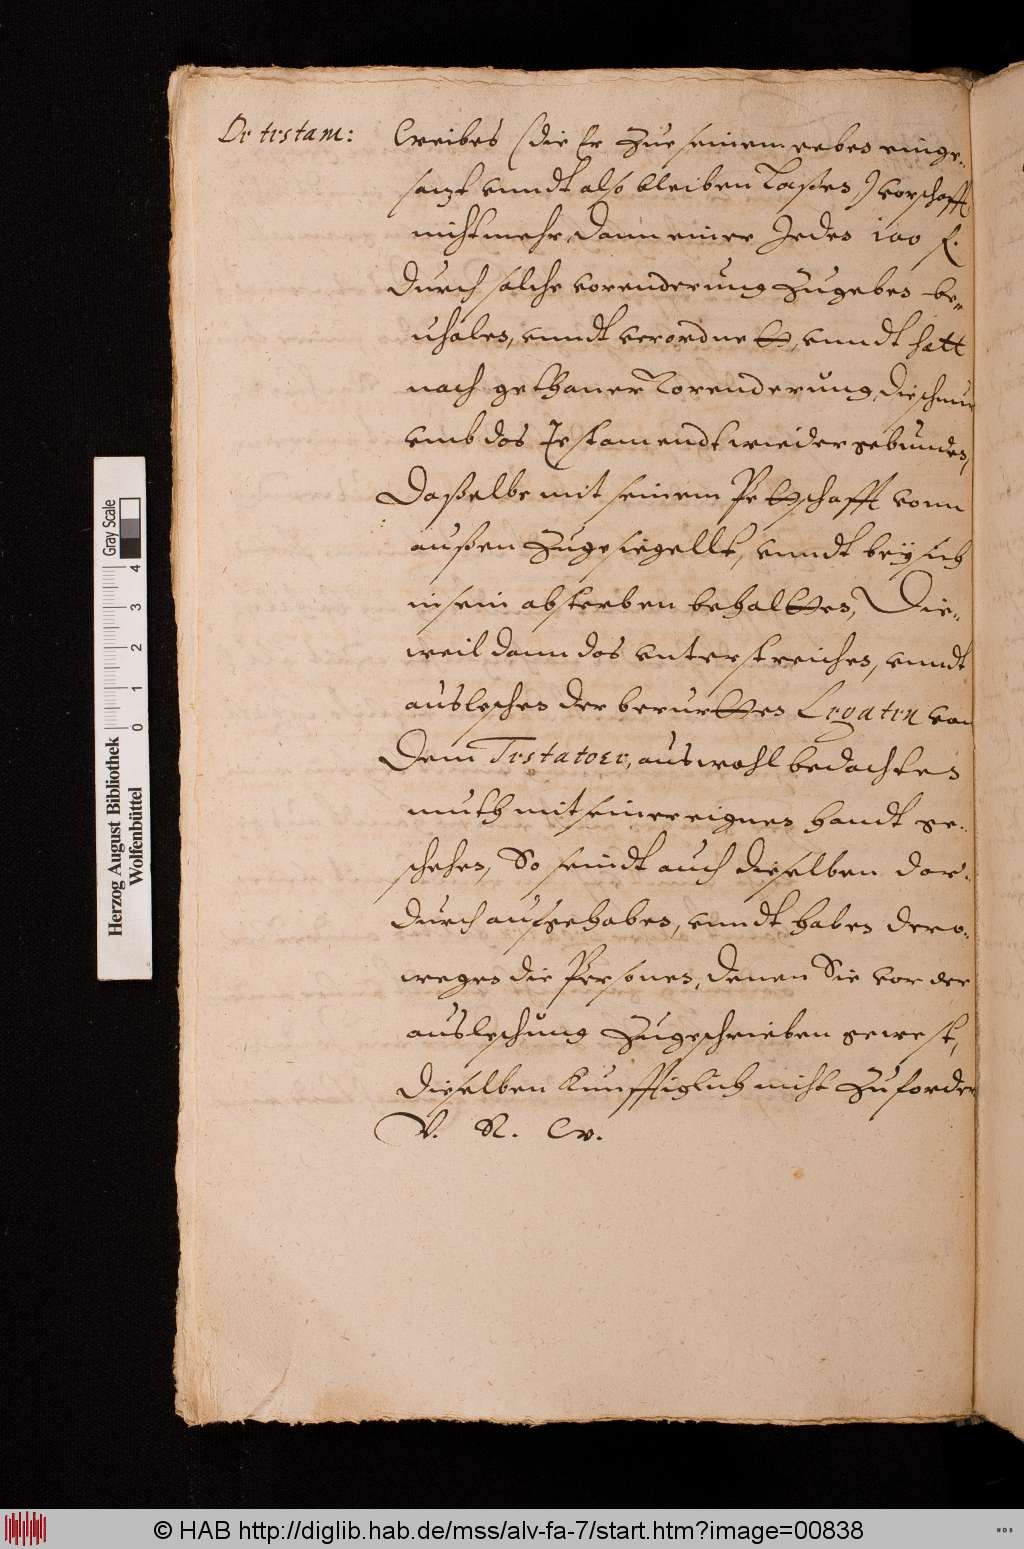 De testam:
Weibes (die Er Zue seinem erben einge-
satzt vnndt also bleiben Laßen) vorschafft
nicht mehr dann einer Jedes 100 f.
durch solche vorenderung Zugeben be-
uholen, vnndt verordnett, vnndt hatt
nach gethaner Vorenderung, die schnur
vmb das Testamendt wieder gebunden,
Daßelbe mit seinem Petschafft vonn
außen Zugesiegellt, vnndt beÿ sich
in sein absterben behaltten, Die-
weil dann das vnterstreichen, vnndt
ausleschen der berurtten Legaten von
Dem Testatoer, aus wohl bedachten
muth mit seiner eignen handt ge-
schehen, So seindt auch dieselben dar-
durch aufgehaben, vnndt haben dero-
wegen die Personen, denen Sie vor der
ausleschung Zugeschrieben gewest,
dieselben Kunfftiglich nicht Zufordern
V. R. W.
Gray Scale
0 1 2 3 4
Herzog August Bibliothek
Wolfenbüttel
© HAB http://diglib.hab.de/mss/alv-fa-7/start.htm?image=00838